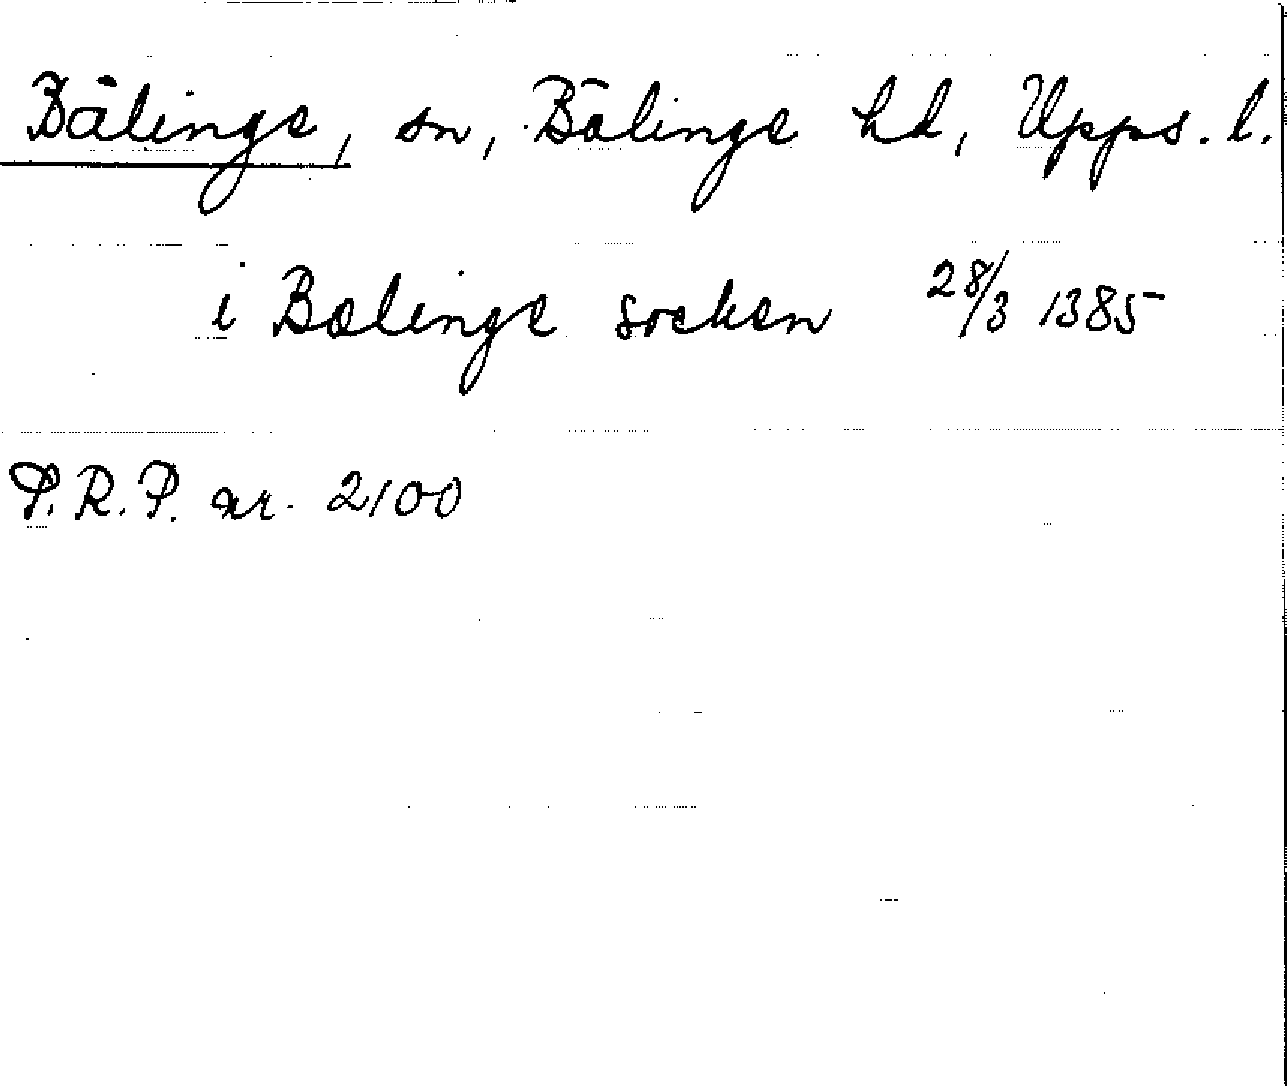 Bälinge, sn, Bälinge hd, Upps. l.
i Bælinge socken 28/3 1385
P.R.P. nr. 2100